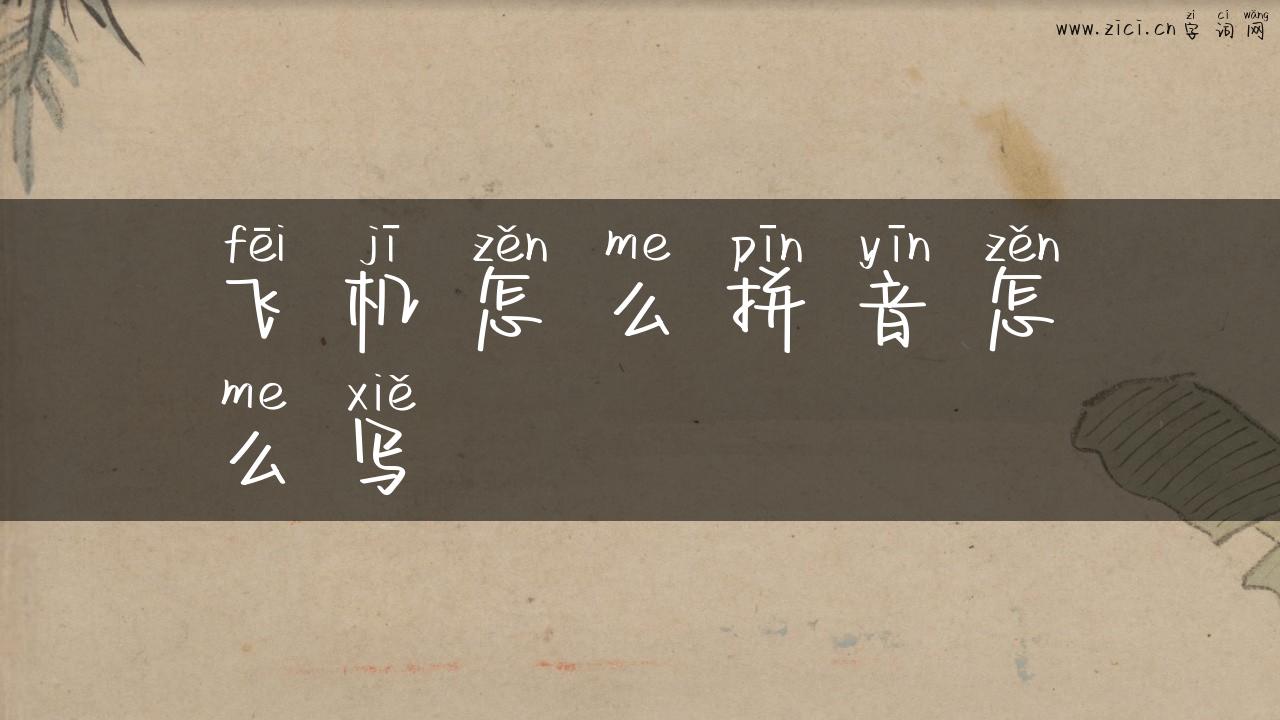 zì cí wǎng
www.zici.cn 字词网
fēi jī zěn me pīn yīn zěn
飞机怎么拼音怎
me xiě
么写